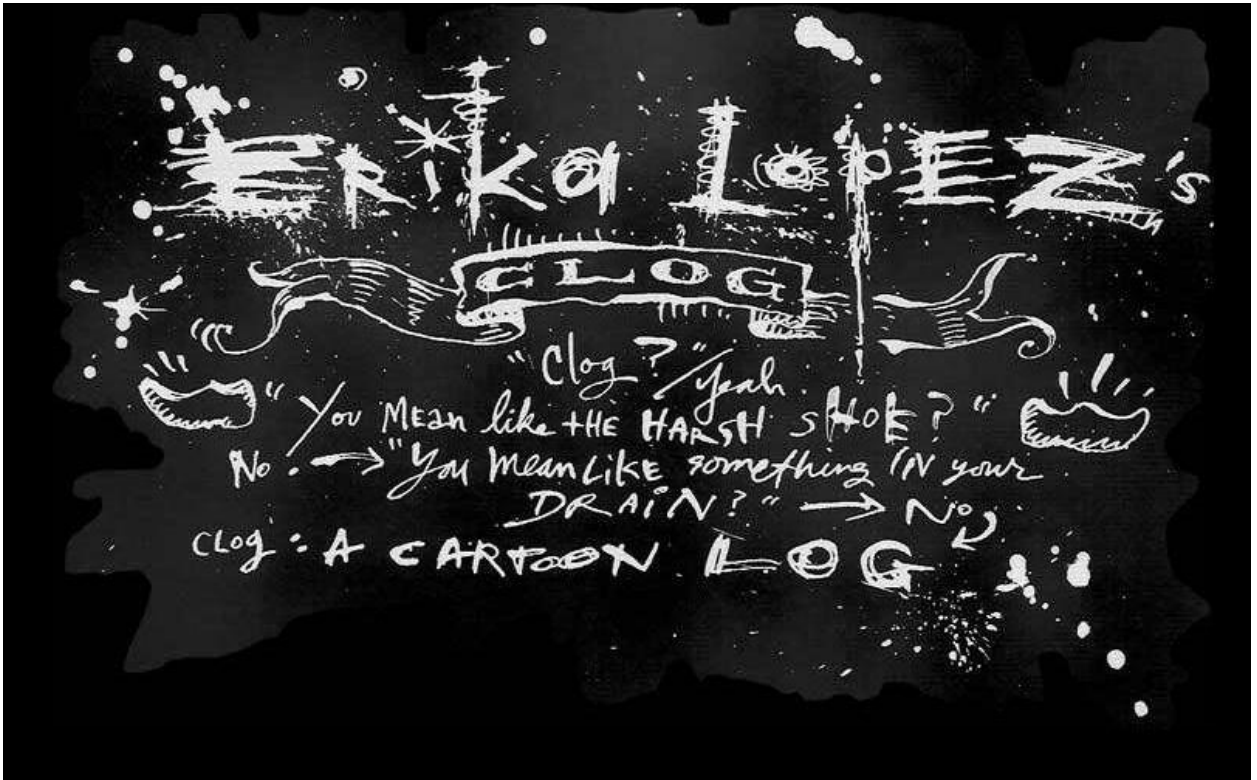 Erika Lopez's
CLOG
"Clog?"/yeah
"You MEan like tHE HARSH SHOE?"
No. → "You mean LIKE something IN your
DRAiN?" → No
CLog: A CARTOON LOG